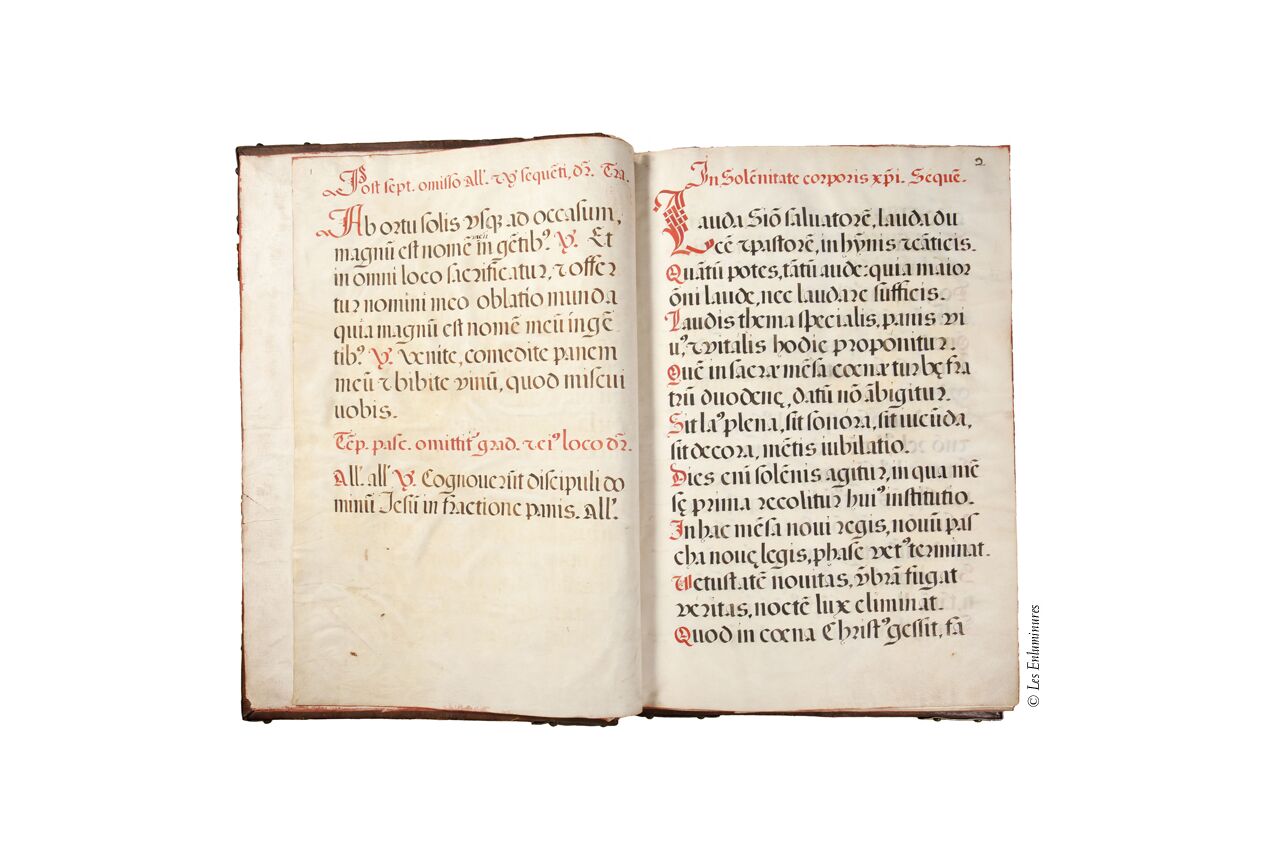 Post sept. omisso all'. et ꝟ sequēti, dr̄. Tra.
Ab ortu solis vsq; ad occasum,
magnū est nomē meū in gētib⁹. ꝟ. Et
in omni loco sacrificatur, ⁊ offer
tur nomini meo oblatio munda
quia magnū est nomē meū in gē
tib⁹. ꝟ. Venite, comedite panem
meū ⁊ bibite vinū, quod miscui
uobis.
Tēp. pasc. omittit᷑ grad. ⁊ ei⁹ loco dr̄.
All'. all' ꝟ. Cognouerūt discipuli do
minū Iesū in fractione panis. All'.
2
In Solēnitate corporis xp̄i. Sequē.
Lauda Siō saluatorē, lauda du
cē ⁊ pastorē, in hȳmis ⁊ cāticis.
Quātū potes, tātū aude: quia maior
ōni laude, nec laudare sufficis.
Laudis thema specialis, panis vi
u⁹, ⁊ vitalis hodie proponitur.
Quē in sacræ mēsa cœnæ turbę fra
trū duodenę, datū nō ābigitur.
Sit la⁹ plena, sit sonora, sit iucūda,
sit decora, mētis iubilatio.
Dies enī solēnis agitur, in qua mē
sę prima recolitur hui⁹ institutio.
In hac mēsa noui regis, nouū pas
cha nouę legis, phase vet⁹ terminat.
Vetustatē nouitas, vm̄brā fugat
veritas, noctē lux eliminat.
Quod in cœna Christ⁹ gessit, fa
© Les Enluminures